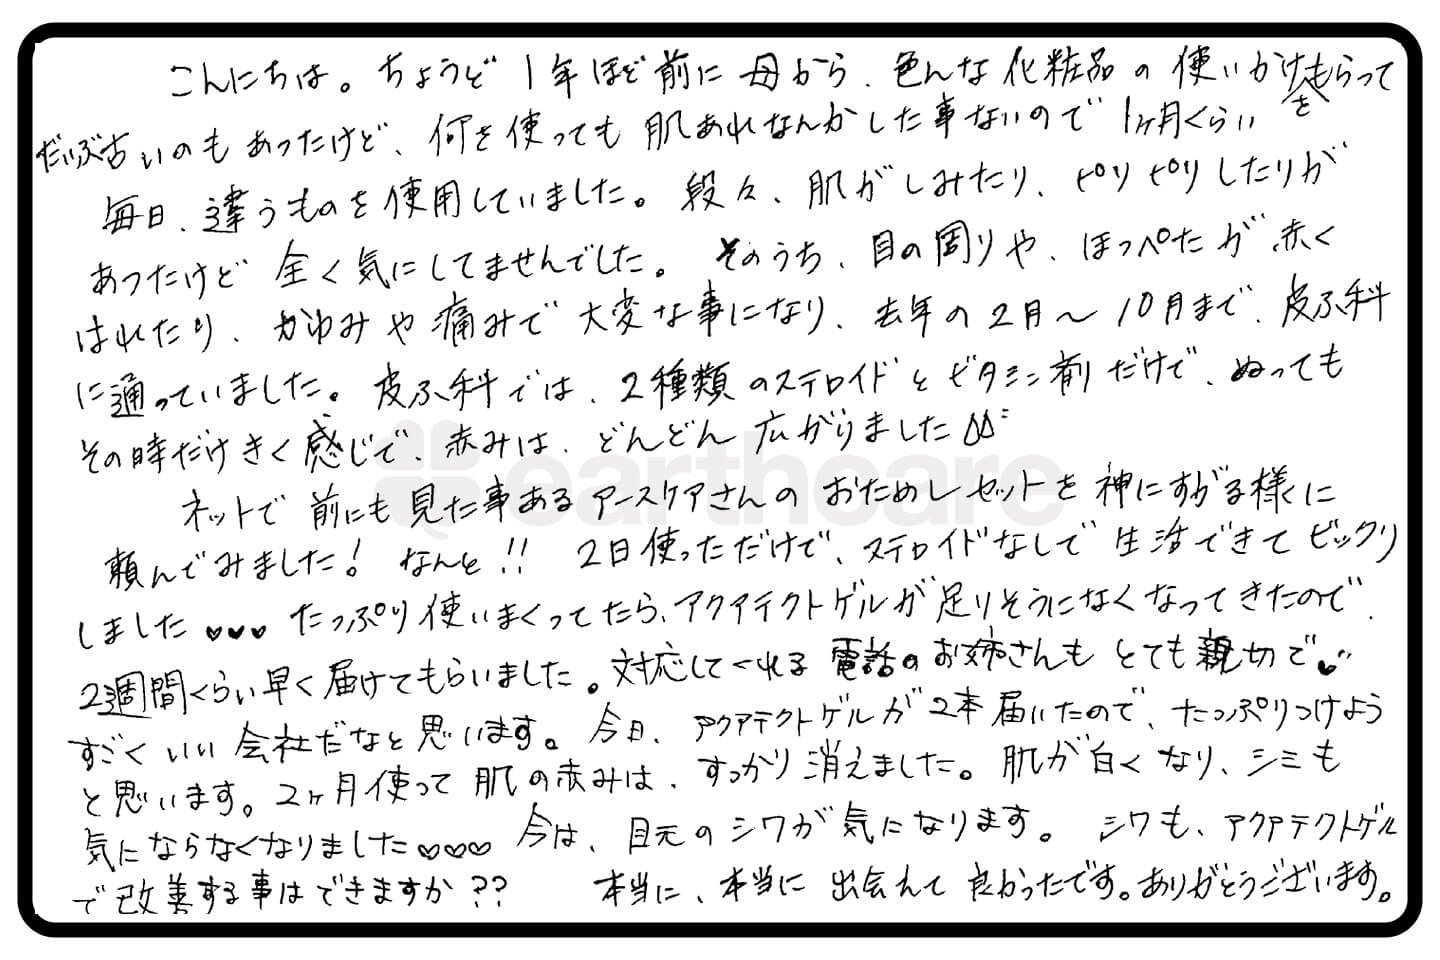 こんにちは。ちょうど1年ほど前に母から、色んな化粧品の使いかけをもらって
だいぶ古いのもあったけど、何を使っても肌あれなんかした事ないので1ヶ月くらい
毎日、違うものを使用していました。段々、肌がしみたり、ピリピリしたりが
あったけど全く気にしてませんでした。そのうち、目の周りや、ほっぺたが赤く
はれたり、かゆみや痛みで大変な事になり、去年の2月～10月まで、皮ふ科
に通っていました。皮ふ科では、2種類のステロイドとビタミン剤だけで、ぬっても
その時だけきく感じで、赤みは、どんどん広がりました
ネットで前にも見た事あるアースケアさんのおためしセットを神にすがる様に
頼んでみました！なんと!! 2日使っただけで、ステロイドなしで生活できてビックリ
しました♡♡♡ たっぷり使いまくってたら、アクアテクトゲルが足りそうになくなってきたので、
2週間くらい早く届けてもらいました。対応してくれる電話のお姉さんもとても親切で
すごくいい会社だなと思います。今日、アクアテクトゲルが2本届いたので、たっぷりつけよう
と思います。2ヶ月使って肌の赤みは、すっかり消えました。肌が白くなり、シミも
気にならなくなりました♡♡♡ 今は、目元のシワが気になります。シワも、アクアテクトゲル
で改善する事はできますか?? 本当に、本当に出会えて良かったです。ありがとうございます。
earthcare